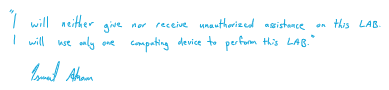 "I will neither give nor receive unauthorized assistance on this LAB.
I will use only one computing device to perform this LAB."